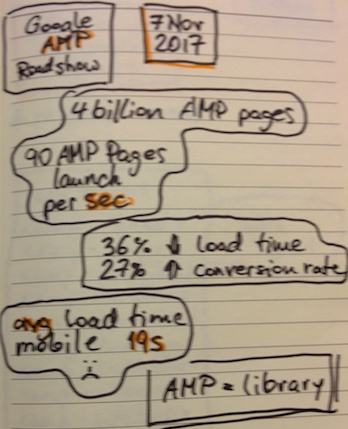 Google
AMP
Roadshow
7 Nov
2017
4 billion AMP pages
90 AMP Pages
launch
per sec
36% ↓ load time
27% ↑ conversion rate
avg load time
mobile 19s
:(
AMP = library